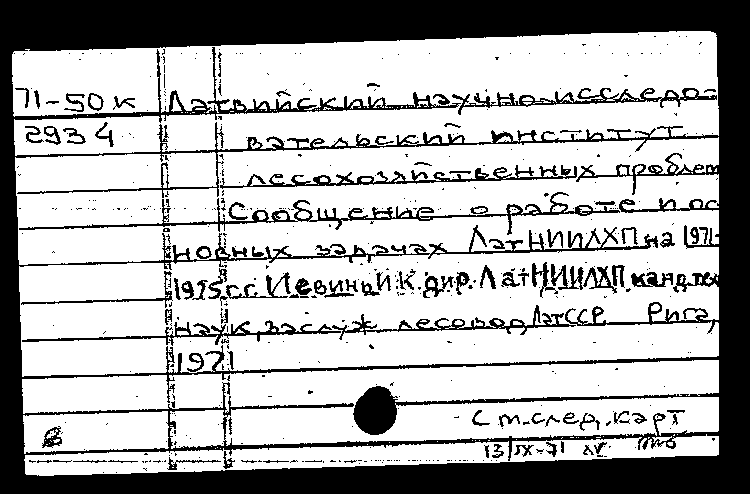 71-50к Латвийский научно-исследо-
2934 вательский институт
лесохозяйственных проблем
Сообщение о работе и ос
новных задачах ЛатНИИЛХП на 1971-
1975 г.г. Иевинь И.К. дир. ЛатНИИЛХП канд. тех
наук, заслуж лесовод ЛатССР. Рига,
1971
См. след. карт
13/IX-71